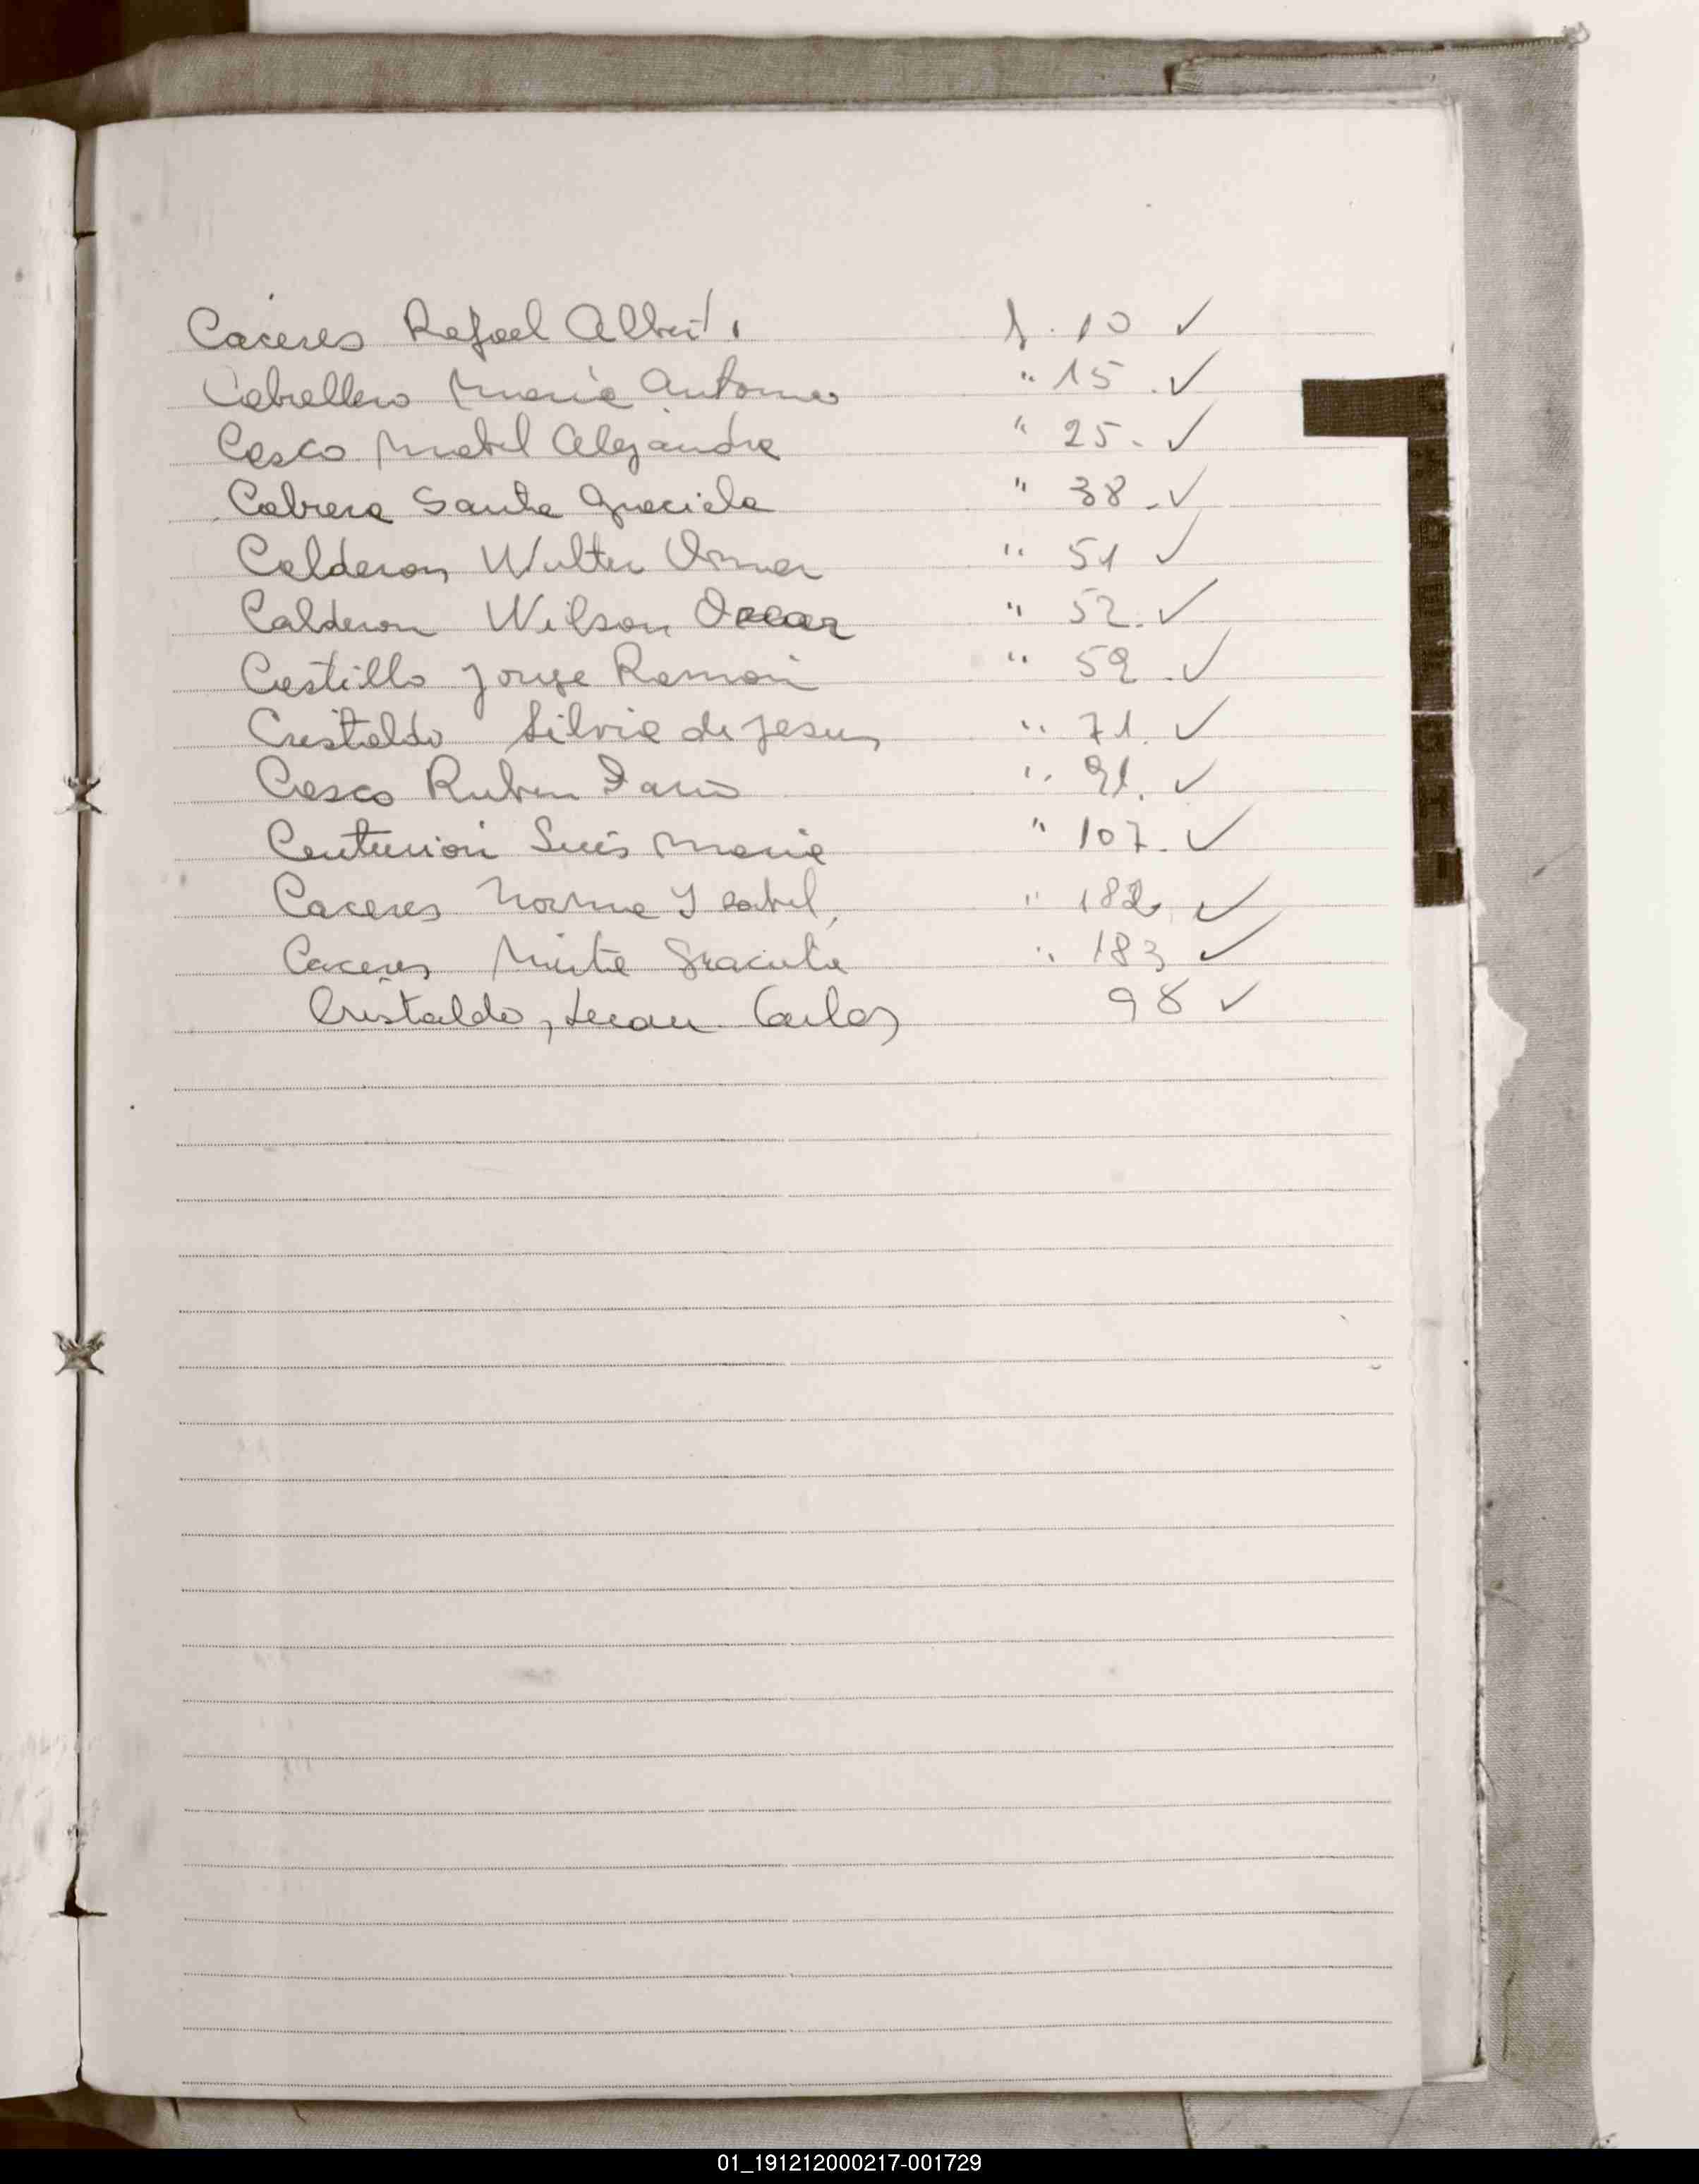 Caceres Rafael Albert. f. 10 ✓
Caballero Maria Antonia " 15. ✓
Casco Mabel Alejandra " 25. ✓
Cabrera Santa Graciela " 38. ✓
Calderon Walter Omar " 51 ✓
Calderon Wilson Oscar " 52. ✓
Castillo Jorge Ramón " 59. ✓
Cristaldo Silvia de Jesus " 71. ✓
Casco Ruben Dario " 91. ✓
Centurión Luis Maria " 107. ✓
Caceres Norma Isabel, " 182. ✓
Caceres Mirta Graciela " 183 ✓
Cristaldo, Juan Carlos 98 ✓
C
D
E
F
G
H
I
01_191212000217-001729